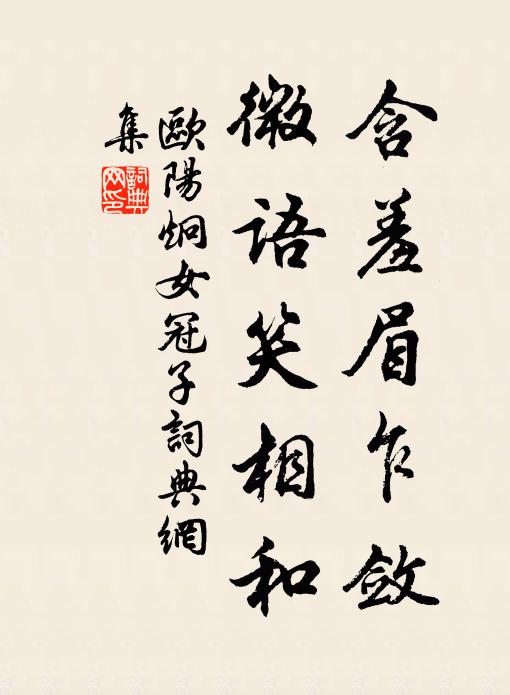 含羞眉乍斂
微語笑相和
歐陽炯女冠子詞典網
集
詞典
网印